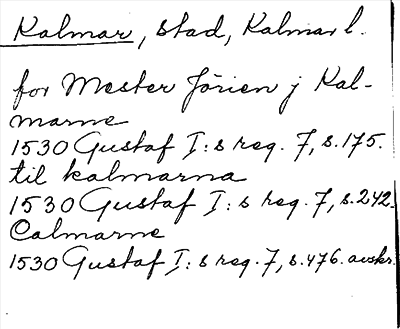 Kalmar, stad, Kalmar l.
for Mester Jörien j Kal-
marne
1530 Gustaf I:s reg. 7, s. 175.
til kalmarna
1530 Gustaf I:s reg. 7, s. 242.
Calmarne
1530 Gustaf I:s reg. 7, s. 476. avskr.